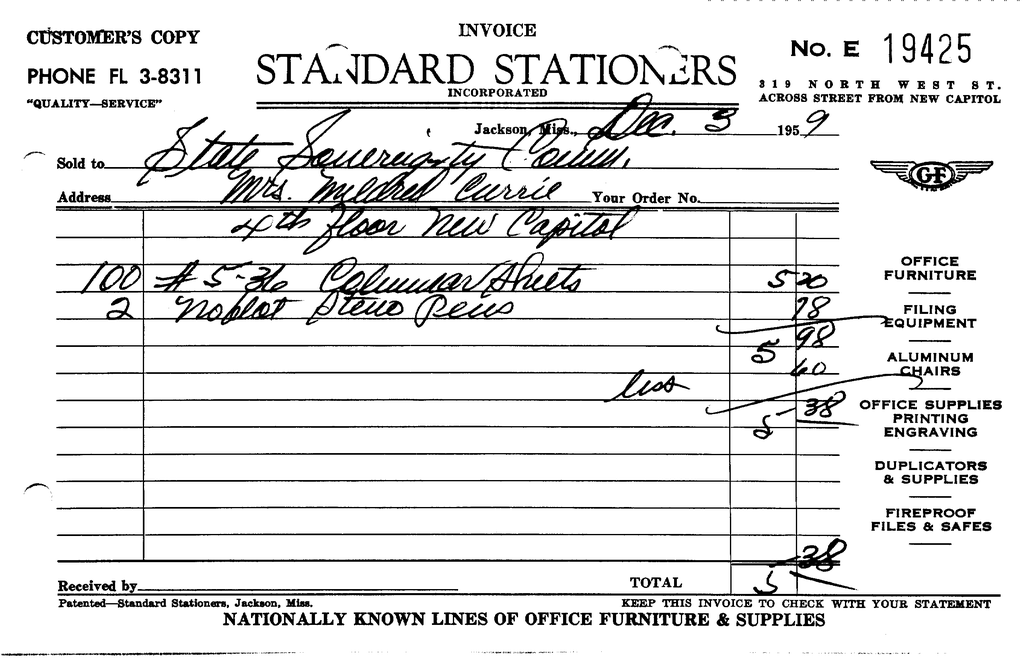 CUSTOMER'S COPY
INVOICE
No. E 19425
PHONE FL 3-8311
STANDARD STATIONERS
"QUALITY—SERVICE"
INCORPORATED
319 NORTH WEST ST.
ACROSS STREET FROM NEW CAPITOL
Jackson, Miss., Dec. 3 1959
Sold to State Sovereignty Comm.
Address Mrs. Mildred Currie Your Order No.
4th Floor New Capitol
GF
100 # 5-36 Columnar Sheets 5 20
2 Noblot Steno Pens 78
5 98
less 60
5 38
OFFICE
FURNITURE
FILING
EQUIPMENT
ALUMINUM
CHAIRS
OFFICE SUPPLIES
PRINTING
ENGRAVING
DUPLICATORS
& SUPPLIES
FIREPROOF
FILES & SAFES
Received by TOTAL 5 38
Patented—Standard Stationers, Jackson, Miss.
KEEP THIS INVOICE TO CHECK WITH YOUR STATEMENT
NATIONALLY KNOWN LINES OF OFFICE FURNITURE & SUPPLIES